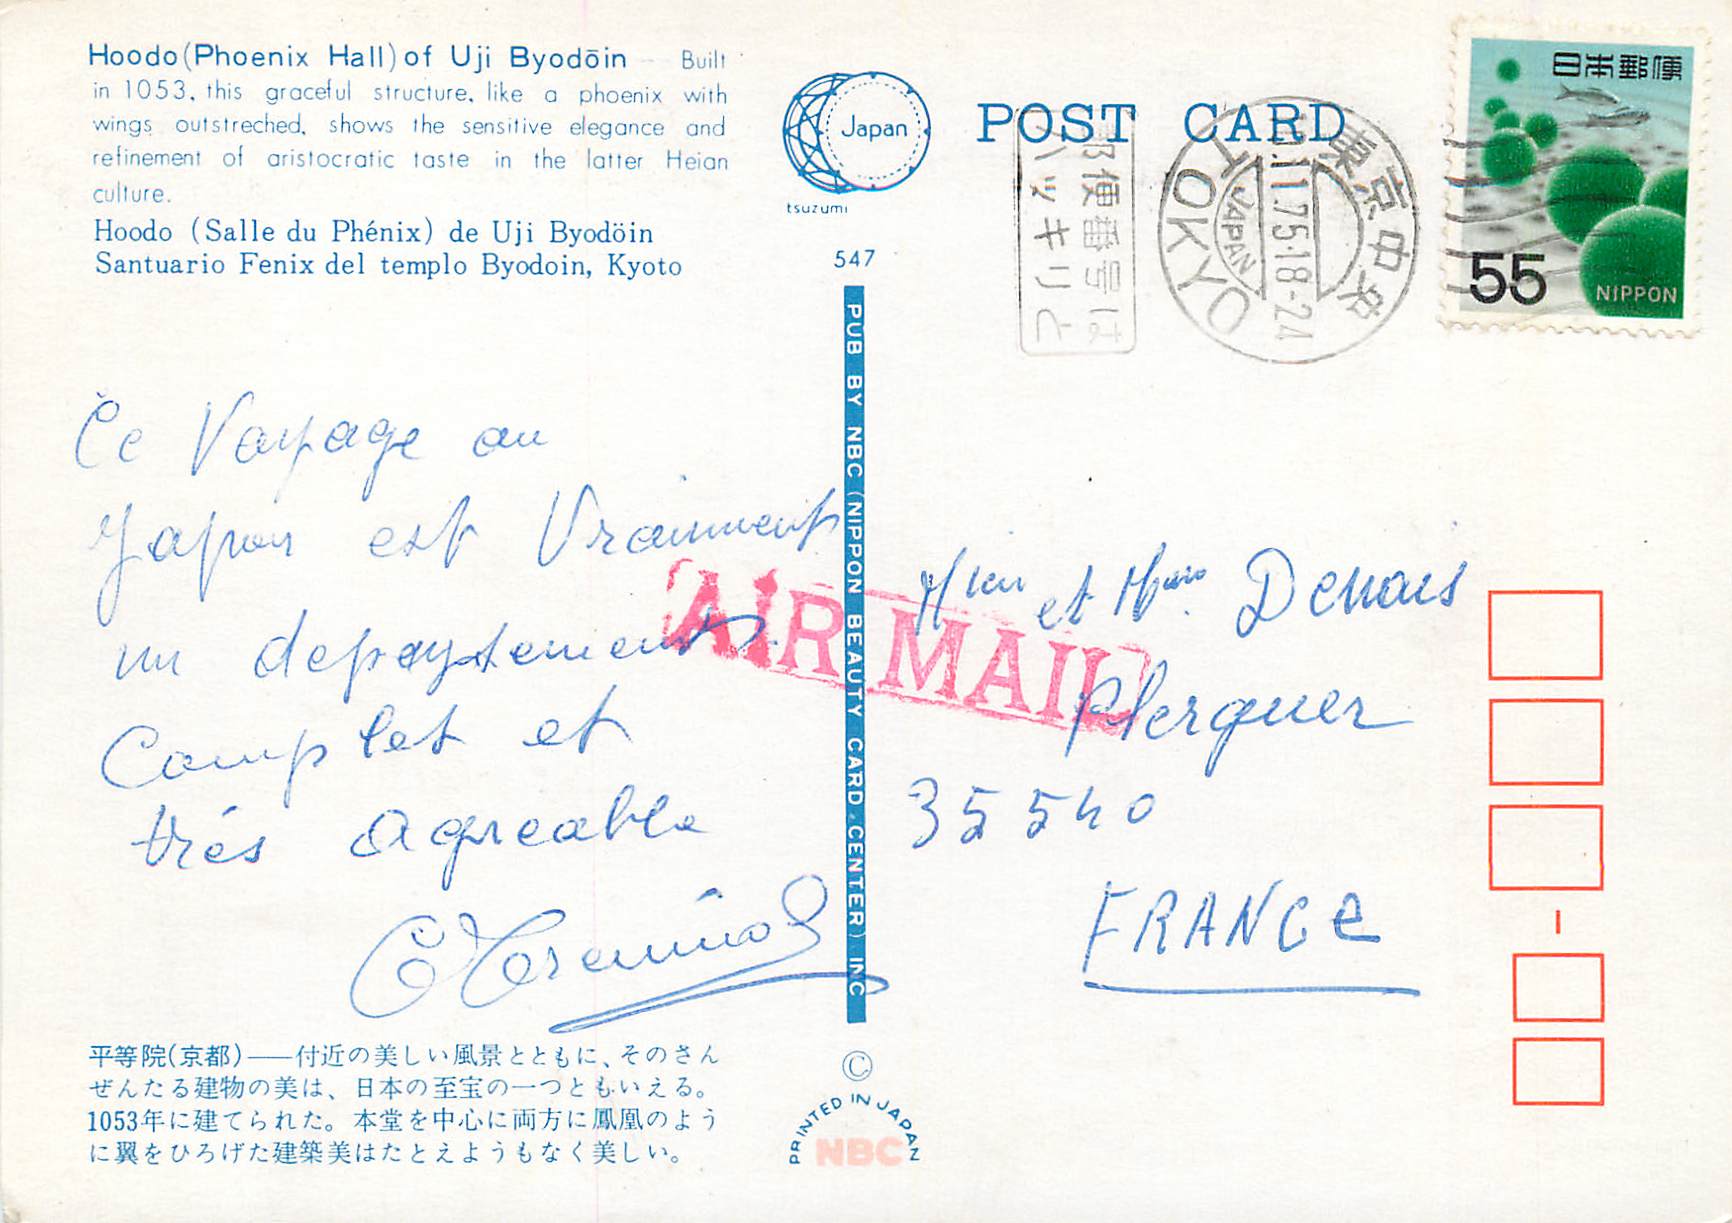 Hoodo (Phoenix Hall) of Uji Byodōin — Built
in 1053, this graceful structure, like a phoenix with
wings outstreched, shows the sensitive elegance and
refinement of aristocratic taste in the latter Heian
culture.
Hoodo (Salle du Phénix) de Uji Byodöin
Santuario Fenix del templo Byodoin, Kyoto
Japan
tsuzumi
547
POST CARD
郵便番号は
ハッキリと
東京中央
10.11.75.18-24
TOKYO
JAPAN
日本郵便
55
NIPPON
PUB BY NBC (NIPPON BEAUTY CARD CENTER) INC
Ce Voyage au
Japon est Vraiment
un depaysement
Complet et
très agreable
AIR MAIL
et Denais
Plerguer
35540
FRANCe
平等院(京都)——付近の美しい風景とともに、そのさん
ぜんたる建物の美は、日本の至宝の一つともいえる。
1053年に建てられた。本堂を中心に両方に鳳凰のよう
に翼をひろげた建築美はたとえようもなく美しい。
©
PRINTED IN JAPAN
NBC